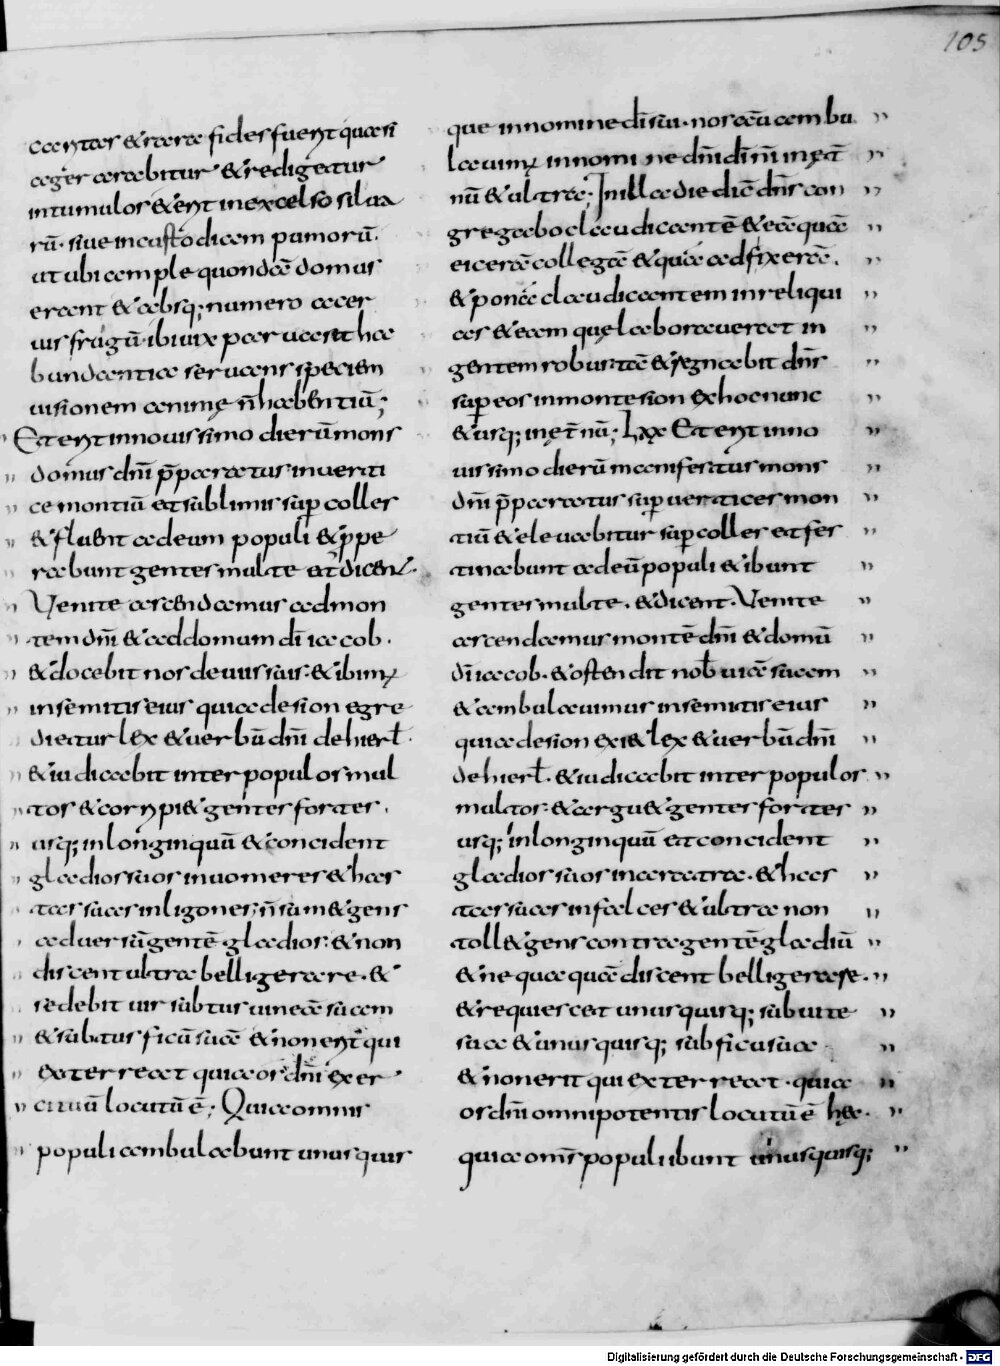 105
caritas & rara fides fuerit quasi
ager arabitur & redigetur
in tumulos & erit in excelso silua
rū· siue in custodiam pamorū·
ut ubi ample quondā domus
erant & absq; numero acer
uus frugū· ibi uix paruas it ha
bundantiae seruans speciem
uisionem animę n̄ habentiū;
Et erit in nouissimo dierū mons
domus dn̄i p̄paratus in uerti
ce montiū et sublimis sup̄ colles
& fluent ad eum populi & p̄pe
rabunt gentes multe et dicen̄t·
Venite ascendamus ad mon
tem dn̄i & ad domum dī iacob·
& docebit nos de uiis suis· & ibimꝰ
in semitis eius quia de sion egre
dietur lex & uerbū dn̄i de hierl̄·
& iudicabit inter populos mul
tos & corripi& gentes fortes·
usq; in longinquū & concident
gladios suos in uomeres & has
tas suas in ligones; n̄ sum& gens
aduersū gentē gladios· & non
discent ultra belligerare· &
sedebit uir subtus uineā suam
& subtus ficū suā & non erit qui
exterreat quia os dn̄i exer
cituū locutū ē; Quia omnis
populi ambulabunt unus quis
que in nomine dī sui· nos aū ambu
lauimꝰ in nomine dn̄i dī nr̄i in ęt̄
nū & ultra; In illa die dic̄ dn̄s con
gregabo claudicantē & eā quā
eicerā collegā & quā adfixerā·
& ponā claudicantem in reliqui
as & eam quę laborauerat in
gentem robustā & regnabit dn̄s
sup̄ eos in monte sion ex hoc nunc
& usq; in ęt̄nū; Lxx Et erit in no
uissimo dierū manifestus mons
dn̄i p̄paratus sup̄ uertices mon
tiū & eleuabitur sup̄ colles et fes
tinabunt ad eū populi & ibunt
gentes multe· & dicent· Venite
ascendamus montē dn̄i & domū
dī iacob· & ostendit nob̄ uiā suam
& ambulauimus in semitis eius
quia de sion exi& lex & uerbū dn̄i
de hierl̄· & iudicabit inter populos
multos· & argu& gentes fortes
usq; in longinquū et concident
gladios suos in aratra· & has
tas suas in falces & ultra non
toll& gens contra gentē gladiū
& nequaquā discent belligerare·
& requiescat unusquisq; sub uite
sua & unusquisq; sub ficu sua
& non erit qui exterreat· quia
os dn̄i omnipotentis locutū ē hęc·
quia om̄s populi ibunt unusquisq;
Digitalisierung gefördert durch die Deutsche Forschungsgemeinschaft - DFG